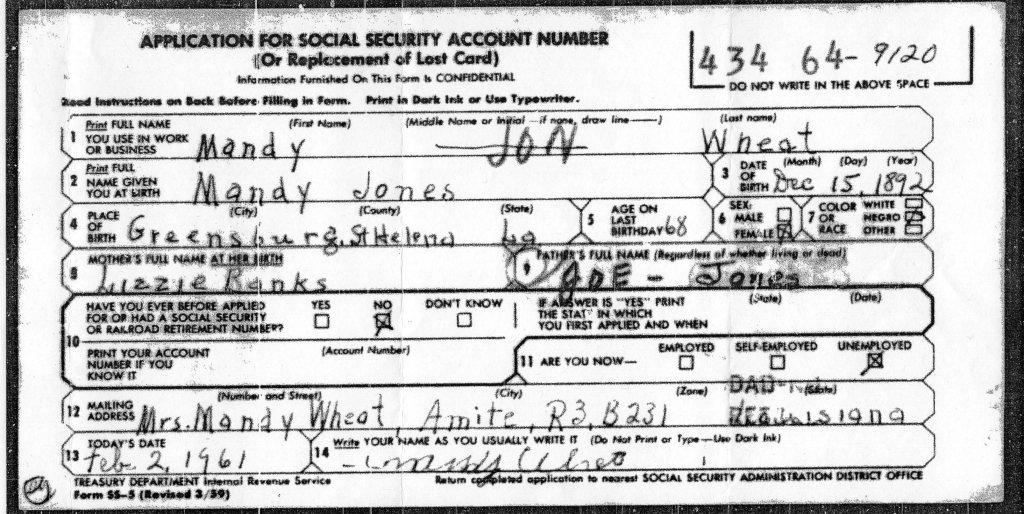 APPLICATION FOR SOCIAL SECURITY ACCOUNT NUMBER
(Or Replacement of Lost Card)
Information Furnished On This Form Is CONFIDENTIAL
434 64-9120
DO NOT WRITE IN THE ABOVE SPACE
Read Instructions on Back Before Filling in Form. Print in Dark Ink or Use Typewriter.
1 Print FULL NAME YOU USE IN WORK OR BUSINESS (First Name) (Middle Name or Initial—if none, draw line——) (Last name)
Mandy JON Wheat
2 Print FULL NAME GIVEN YOU AT BIRTH Mandy Jones
3 DATE OF BIRTH (Month) (Day) (Year) Dec 15, 1892
4 PLACE OF BIRTH (City) (County) (State) Greensburg, St Helena La
5 AGE ON LAST BIRTHDAY 68
6 SEX: MALE FEMALE
7 COLOR OR RACE WHITE NEGRO OTHER
8 MOTHER'S FULL NAME AT HER BIRTH
Lizzie Banks
9 FATHER'S FULL NAME (Regardless of whether living or dead)
JOE - Jones
10 HAVE YOU EVER BEFORE APPLIED FOR OR HAD A SOCIAL SECURITY OR RAILROAD RETIREMENT NUMBER? YES NO DON'T KNOW
IF ANSWER IS "YES" PRINT THE STATE IN WHICH YOU FIRST APPLIED AND WHEN (State) (Date)
PRINT YOUR ACCOUNT NUMBER IF YOU KNOW IT (Account Number)
11 ARE YOU NOW— EMPLOYED SELF-EMPLOYED UNEMPLOYED
12 MAILING ADDRESS (Number and Street) (City) (Zone) (State)
Mrs. Mandy Wheat, Amite, R3, B231 Louisiana
13 TODAY'S DATE
Feb. 2, 1961
14 Write YOUR NAME AS YOU USUALLY WRITE IT (Do Not Print or Type—Use Dark Ink)
TREASURY DEPARTMENT Internal Revenue Service
Form SS-5 (Revised 3/59)
Return completed application to nearest SOCIAL SECURITY ADMINISTRATION DISTRICT OFFICE